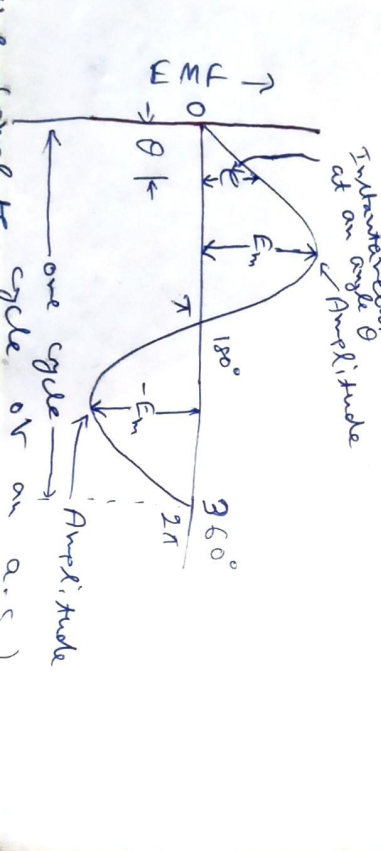 Instantaneous
at an angle θ
Amplitude
EMF →
e
Em
O
π
180°
360°
2π
θ
-Em
Amplitude
one cycle
cycle or an a.c.)